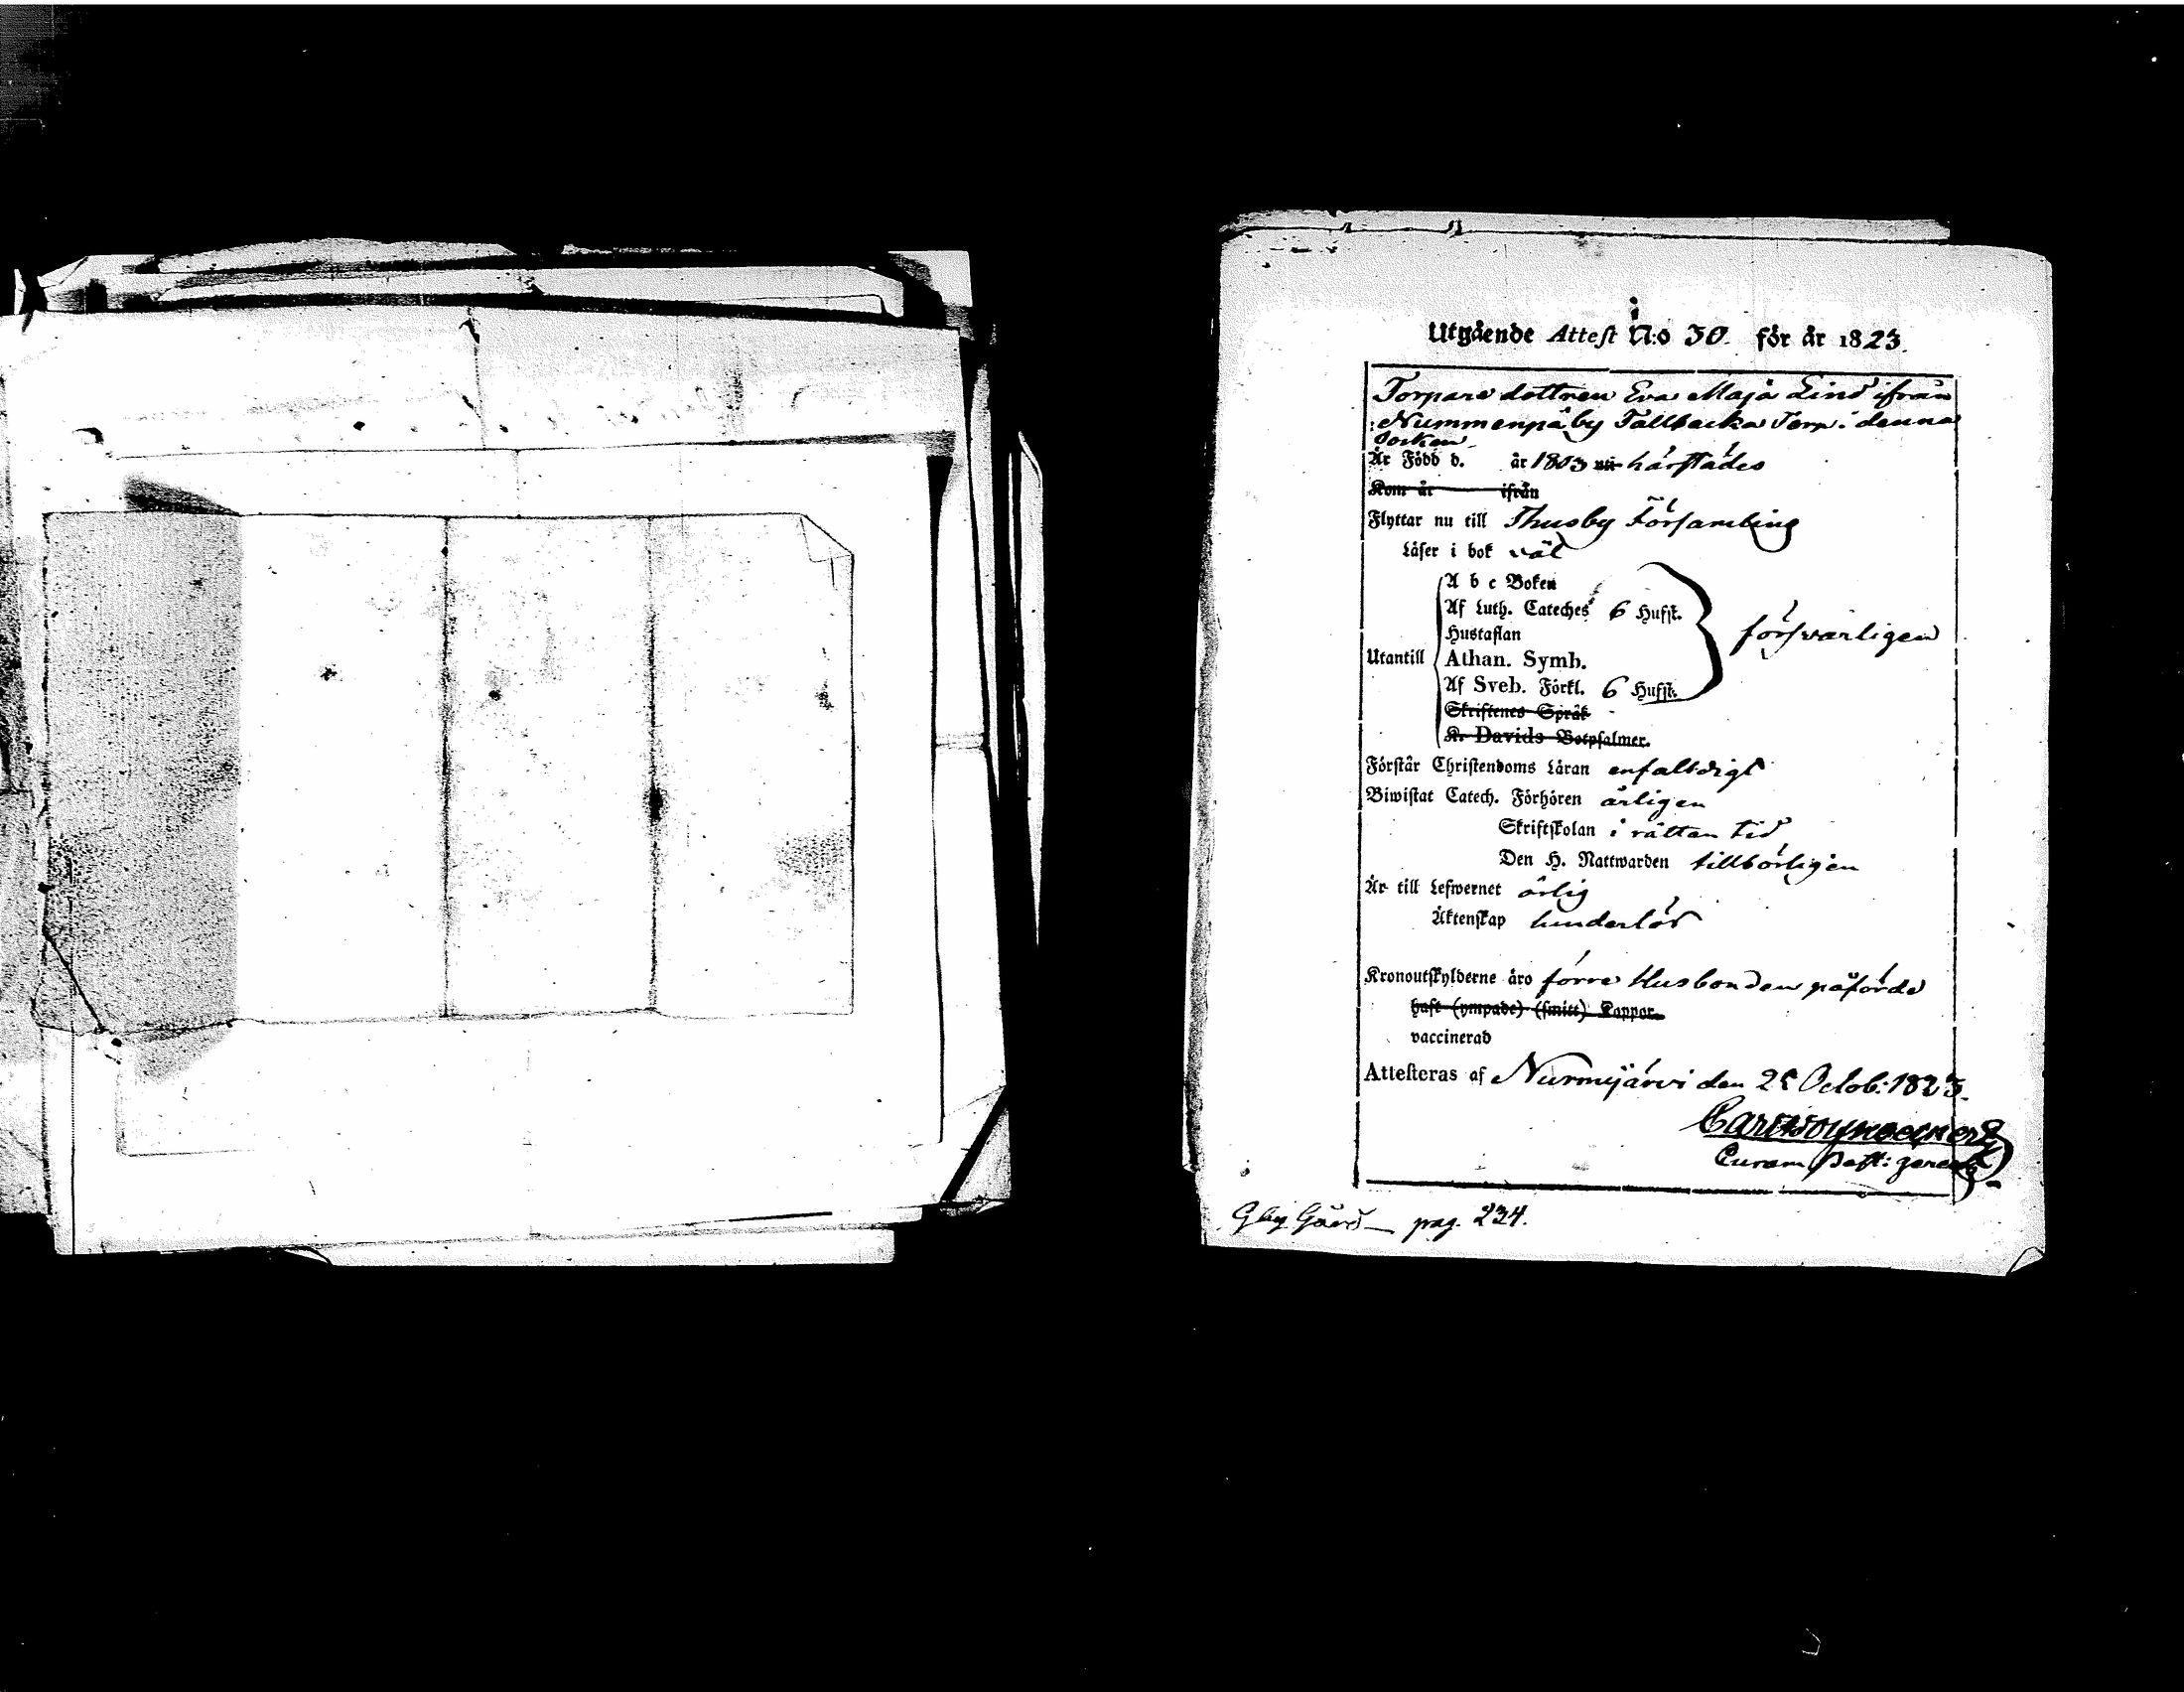 Utgående Attest N:o 30. för år 1823.
Torpare dottren Eva Maja Lind ifrån
Nummenpä by Tallbacka Torp i denna
Socken
Är Född d. år 1803 härstädes
Kom år ifrån
Flyttar nu till Thusby Församling
Läser i bok väl
A b c Boken
Af Luth. Cateches 6 Hufst.
Hustaflan
försvarligen
Utantill Athan. Symb.
Af Sveb. Förkl. 6 Hufst.
Skriftenes Språk
K. Davids Botpsalmer.
Förstår Christendoms Läran enfaldigt
Biwistat Catech. Förhören årligen
Skriftskolan i rättan tid
Den H. Nattwarden tillbörligen
Är till Lefwernet ärlig
Äktenskap hinderlös
Kronoutskylderne äro förre Husbonden påförde
haft (ympade) (smitt) Koppor.
vaccinerad
Attesteras af Nurmijärvi den 25 Octob: 1823.
Curam Past: gerens
Gby Gård — pag. 234.